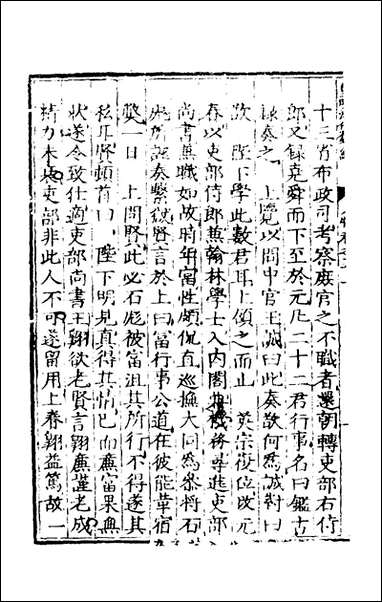 十三省布政司考察庶官之不職者還朝轉吏部右侍
郎又錄堯舜而下至於元凡二十二君行事名曰鑑古
錄奏之上覽以問中官王誠曰此奏欲何為誠對曰
欲陛下學此數君耳上頷之而止英宗復位改元
春以吏部侍郎兼翰林學士入內閣典機務尋進吏部
尚書兼職如故時年富性頗伉直巡撫大同為參將石
彪所誣奏繫獄賢言於上曰富行事公道在彼能革宿
獘一日上問賢此必石彪被富沮其所行不得遂其
私耳賢頓首曰陛下明見真得其情已而薦富果無
狀遂令致仕適吏部尚書王翱欲老賢言翱廉謹老成
精力未衰吏部非此人不可遂留用上眷翱益篤故一